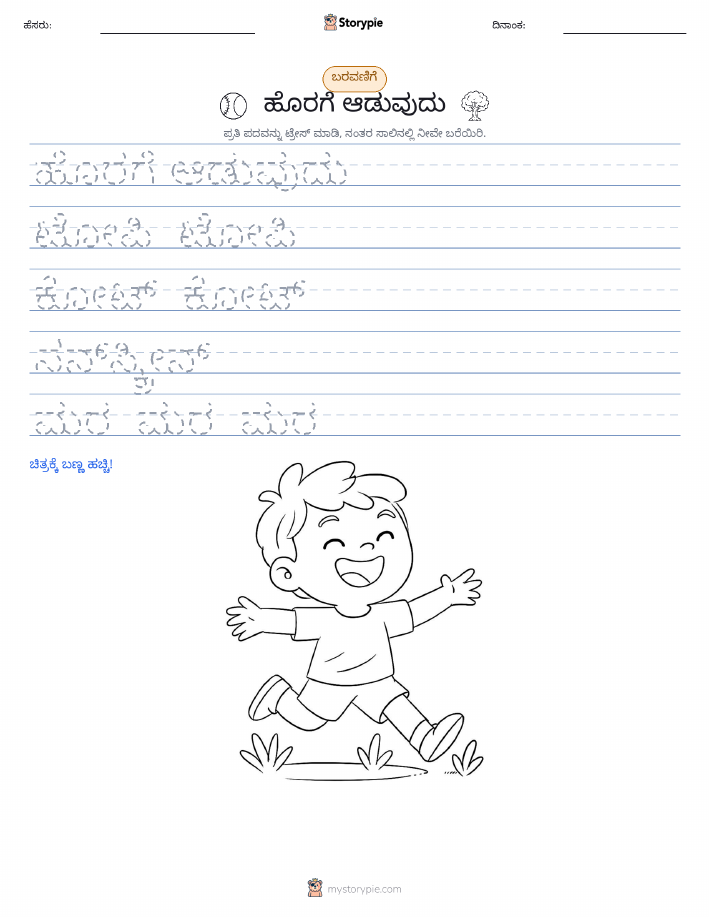 ಹೆಸರು:
Storypie
ದಿನಾಂಕ:
ಬರವಣಿಗೆ
ಹೊರಗೆ ಆಡುವುದು
ಪ್ರತಿ ಪದವನ್ನು ಟ್ರೇಸ್ ಮಾಡಿ, ನಂತರ ಸಾಲಿನಲ್ಲಿ ನೀವೇ ಬರೆಯಿರಿ.
ಹೊರಗೆ ಆಡುವುದು
ಟೋಪಿ ಟೋಪಿ
ಕೋಟ್ ಕೋಟ್
ಸನ್‌ಸ್ಕ್ರೀನ್
ಮರ ಮರ ಮರ
ಚಿತ್ರಕ್ಕೆ ಬಣ್ಣ ಹಚ್ಚಿ!
mystorypie.com